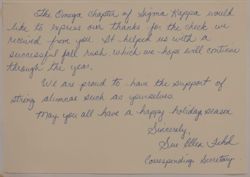 The Omega Chapter of Sigma Kappa would
like to express our thanks for the check we
received from you. It helped us with a
successful fall rush which we hope will continue
through the year.
We are proud to have the support of
strong alumnae such as yourselves.
May you all have a happy holiday season
Sincerely,
Sue Ellen
Corresponding Secretary